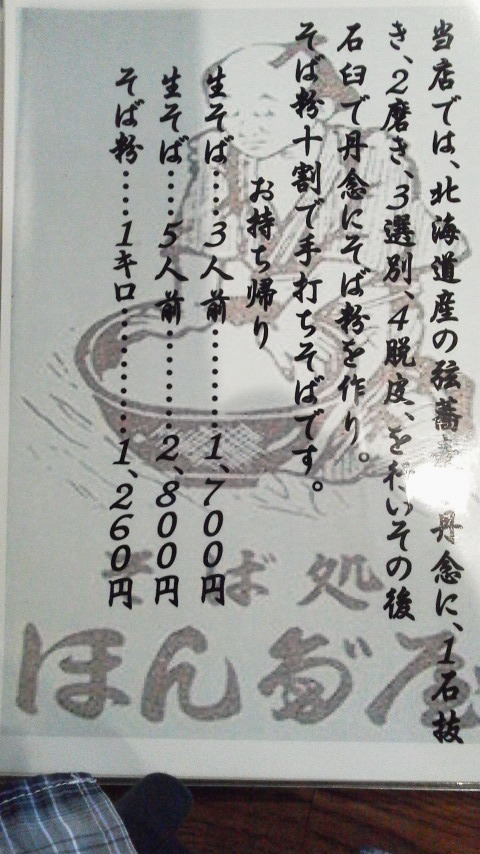 当店では、北海道産の弦蕎 丹念に、1石抜
き、2磨き、3選別、4脱皮、を行いその後
石臼で丹念にそば粉を作り。
そば粉十割で手打ちそばです。
お持ち帰り
生そば‥‥3人前‥‥‥‥‥1、700円
生そば‥‥5人前‥‥‥‥‥2、800円
そば粉‥‥1キロ‥‥‥‥‥1、260円
そば処
ほんぢ屋